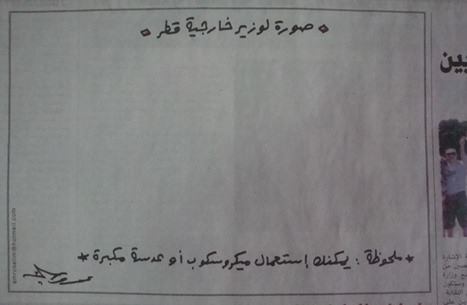 صورة لوزير خارجية قطر
* ملحوظة : يمكنك إستعمال ميكروسكوب أو عدسة مكبرة *
بين
الإشارة